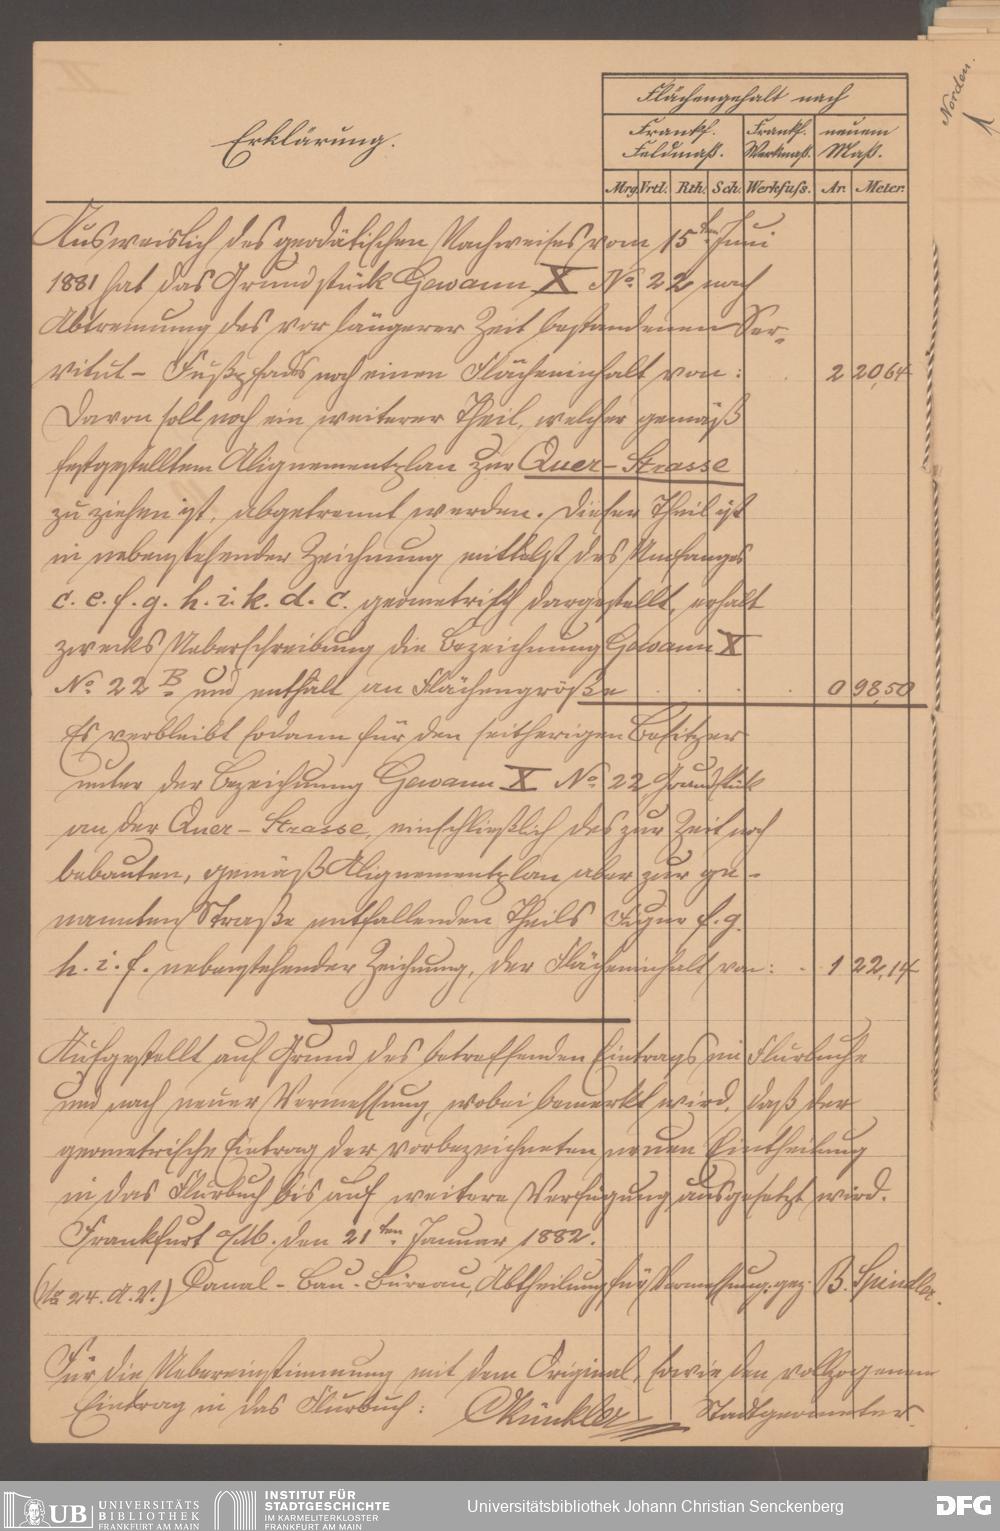 Erklärung.
Flächengehalt nach
Frankf. Feldmaß.
Frankf. Werkmaß.
neuem Maß.
Mrg. Vrtl. Rth. Sch. Werkfuß. Ar. Meter.
Ausweislich des geodätischen Nachweises vom 15ten Juni
1881 hat das Grundstück Gewann X No. 22 nach
Abtrennung des vor längerer Zeit bestandenen Ser-
vitut- Fußpfads noch einen Flächeninhalt von: 2 20,64
Davon soll noch ein weiterer Theil, welcher gemäß
festgestelltem Alignementplan zur Quer-Strasse
zu ziehen ist, abgetrennt werden. Dieser Theil ist
in nebenstehender Zeichnung mittelst des Umfanges
c. e. f. g. h. i. k. d. c. geometrisch dargestellt, erhält
zwecks Ueberschreibung die Bezeichnung Gewann X
No. 22 B und enthält an Flächengröße . . . . 0 98,50
Es verbleibt sodann für den seitherigen Besitzer
unter der Bezeichnung Gewann X No. 22, Grundstück
an der Quer-Strasse, einschließlich des zur Zeit noch
bebauten, gemäß Alignementplan aber zur ge-
nannten Straße entfallenden Theils Figur f. g.
h. i. f. nebenstehender Zeichnung, der Flächeninhalt von: . 1 22,14
Aufgestellt auf Grund des betreffenden Eintrags im Flurbuche
und nach neuer Vermessung, wobei bemerkt wird, daß der
geometrische Eintrag der vorbezeichneten neuen Eintheilung
in das Flurbuch bis auf weitere Verfügung ausgesetzt wird.
Frankfurt a/M. den 21ten Januar 1882.
(No 24. A. V.) Canal-Bau-Büreau, Abtheilung für Vermessung. gez. B. Spindler.
Für die Uebereinstimmung mit dem Original, sowie den vollzogenen
Eintrag in das Flurbuch: Stadtgeometer.
Norden.
UB UNIVERSITÄTS
BIBLIOTHEK
FRANKFURT AM MAIN
INSTITUT FÜR
STADTGESCHICHTE
IM KARMELITERKLOSTER
FRANKFURT AM MAIN
Universitätsbibliothek Johann Christian Senckenberg
DFG